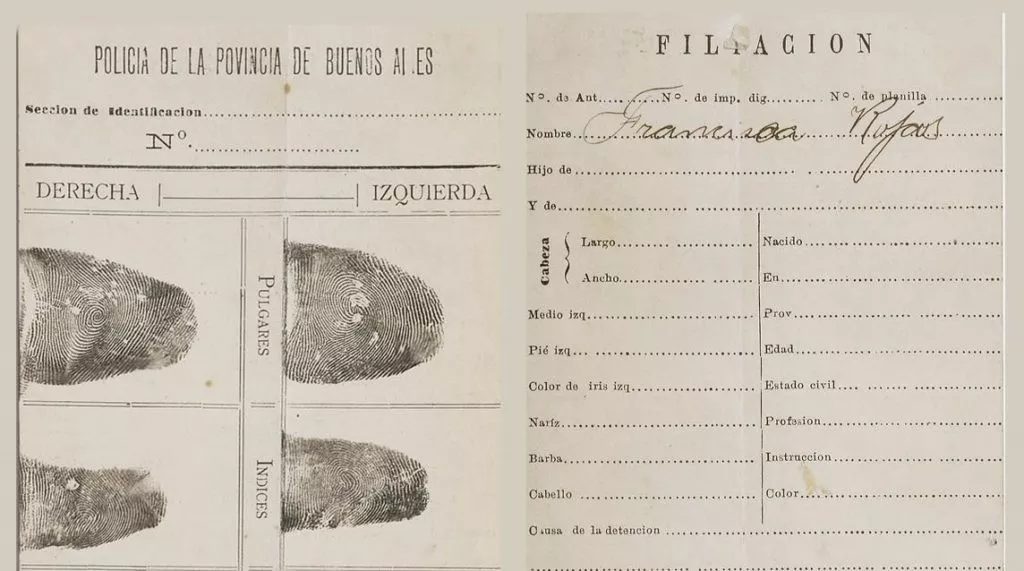 POLICIA DE LA POVINCIA DE BUENOS AI.ES
Seccion de Identificacion
Nº.
DERECHA | | IZQUIERDA
PULGARES
INDICES
FILIACION
Nº. de Ant. Nº. de imp. dig. Nº. de planilla
Nombre Francisca Rojas
Hijo de
Y de
Cabeza
Largo
Ancho
Medio izq
Pié izq
Color de iris izq
Naríz
Barba
Cabello
Nacido
En
Prov
Edad
Estado civil
Profesion
Instruccion
Color
Causa de la detencion